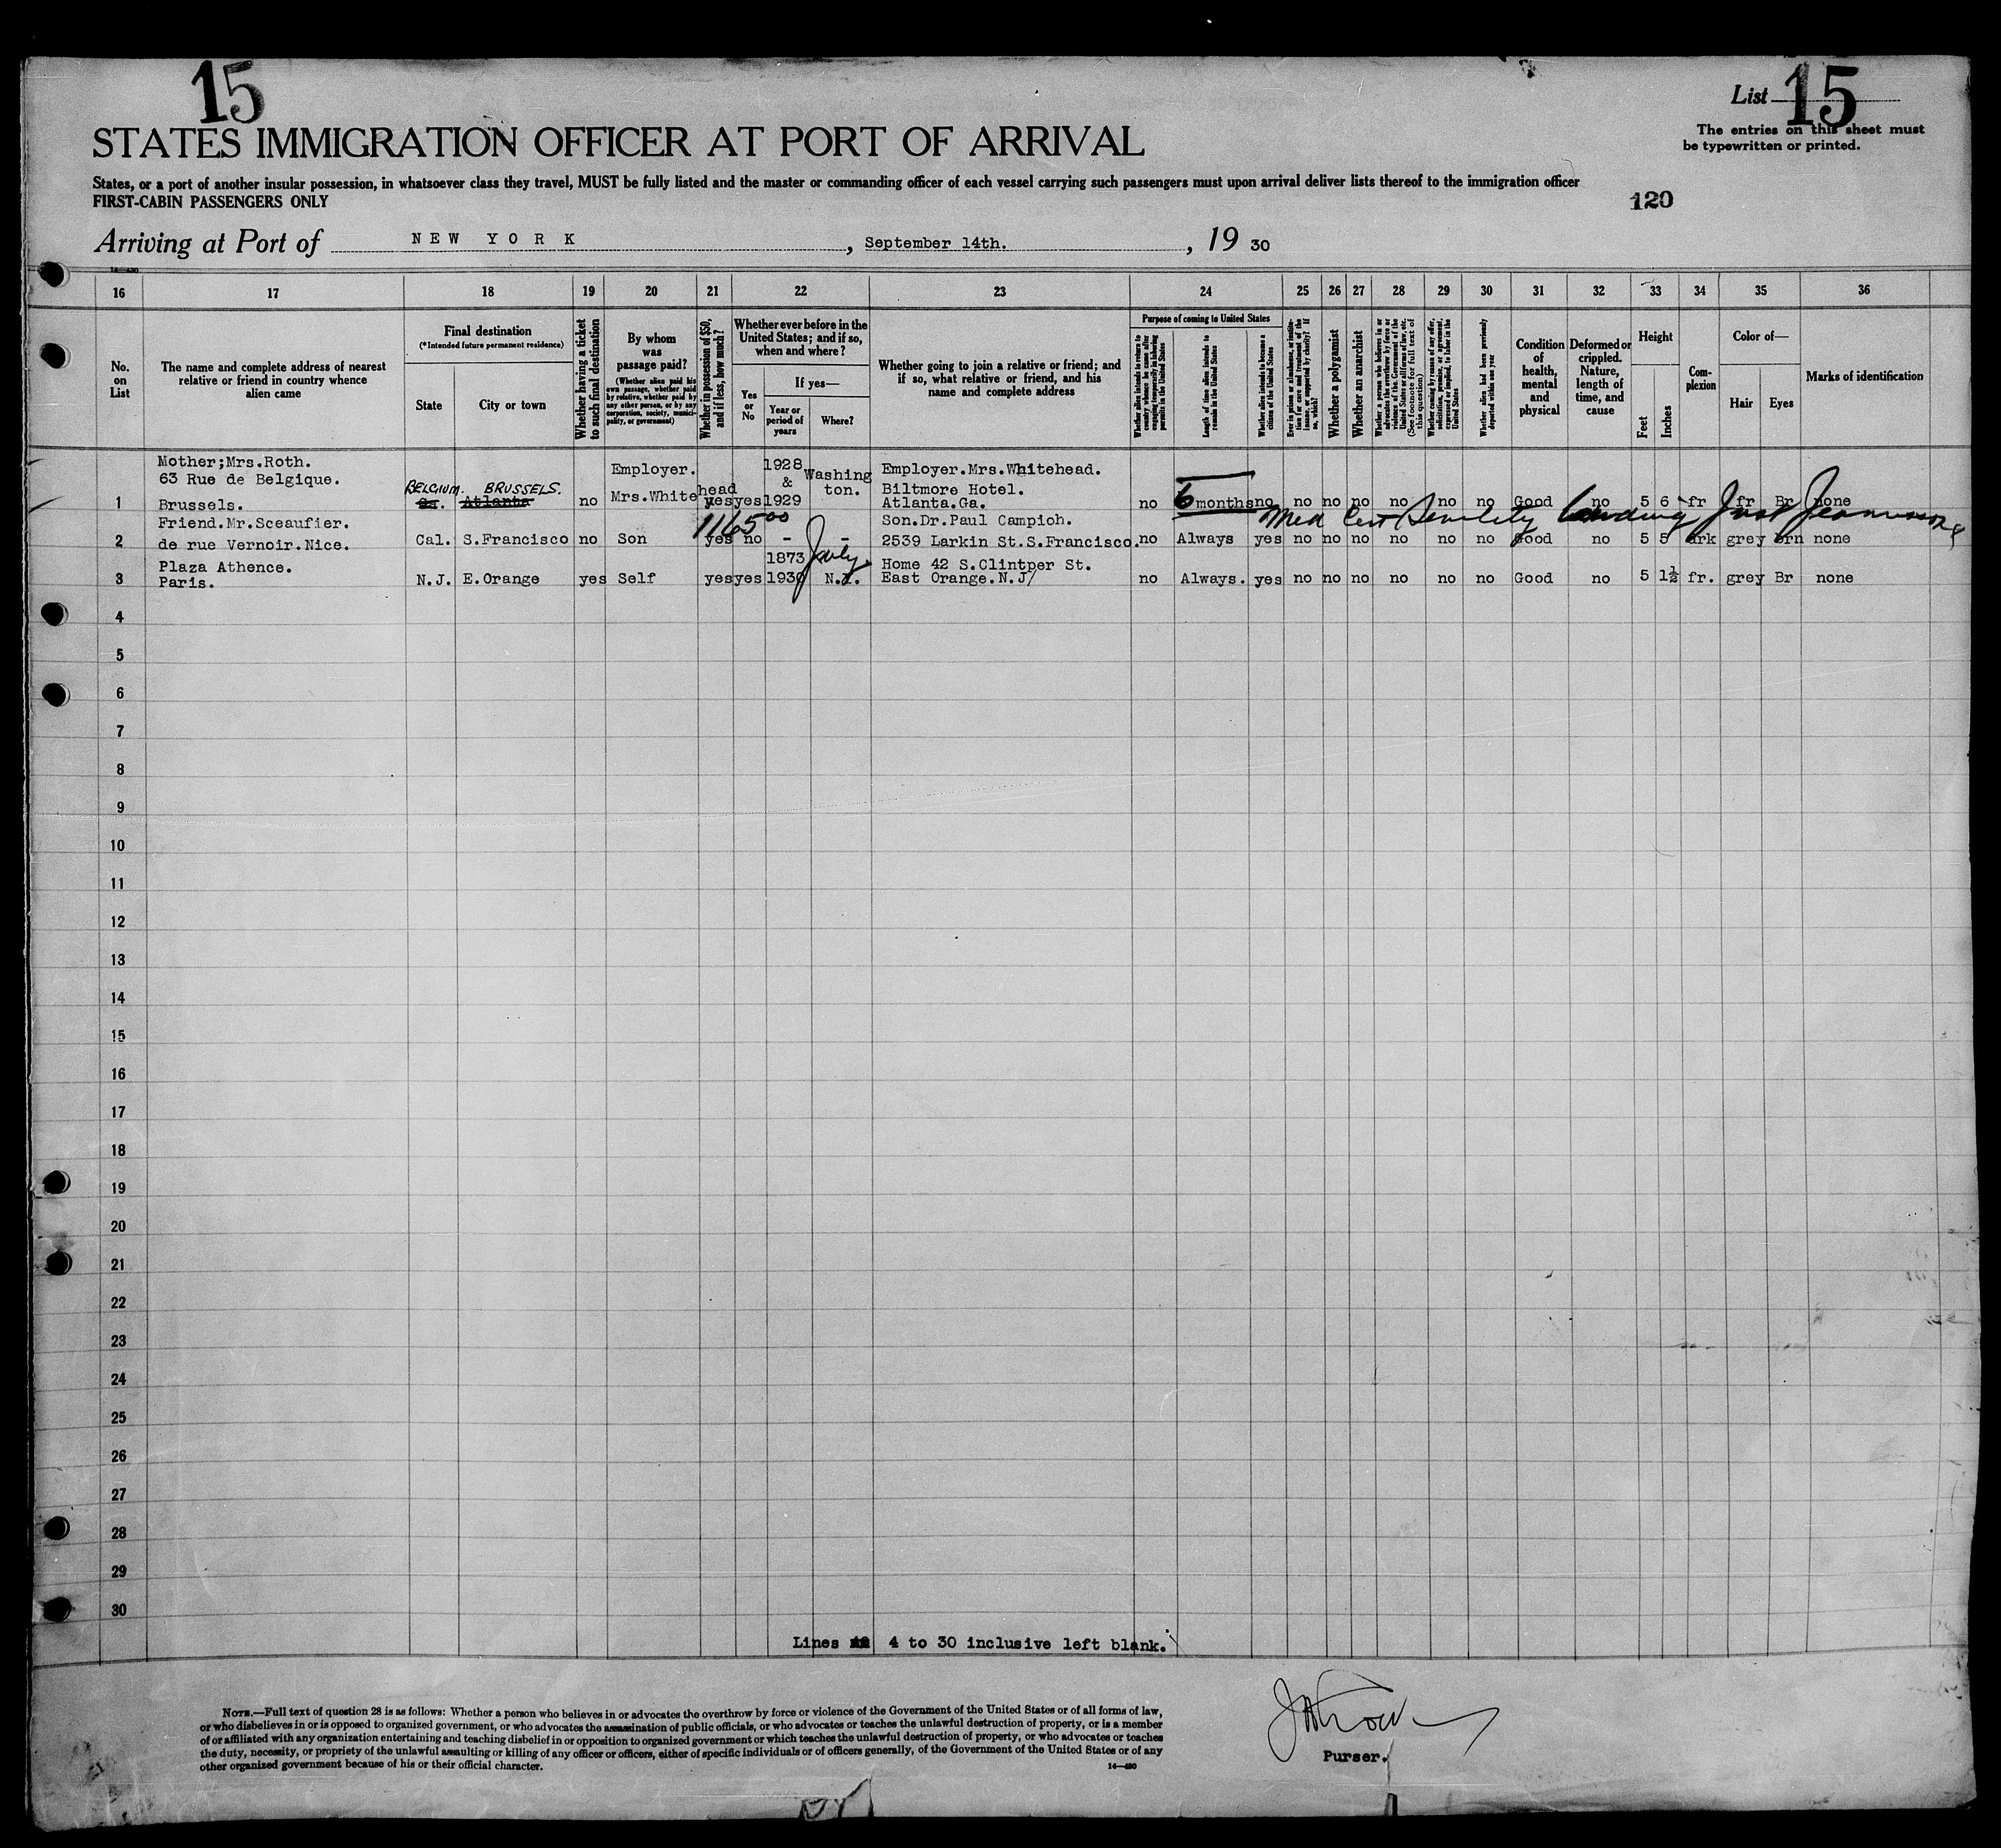 15
List 15
STATES IMMIGRATION OFFICER AT PORT OF ARRIVAL
The entries on this sheet must
be typewritten or printed.
States, or a port of another insular possession, in whatsoever class they travel, MUST be fully listed and the master or commanding officer of each vessel carrying such passengers must upon arrival deliver lists thereof to the immigration officer
FIRST-CABIN PASSENGERS ONLY
120
Arriving at Port of NEW YORK, September 14th., 19 30
16 17 18 19 20 21 22 23 24 25 26 27 28 29 30 31 32 33 34 35 36
No. on List
The name and complete address of nearest
relative or friend in country whence
alien came
Final destination
(*Intended future permanent residence)
State
City or town
Whether having a ticket
to such final destination
By whom
was
passage paid?
(Whether alien paid his
own passage, whether paid
by relative, whether paid by
any other person, or by any
corporation, society, munici-
pality, or government)
Whether in possession of $50,
and if less, how much?
Whether ever before in the
United States; and if so,
when and where?
Yes or No
If yes—
Year or
period of
years
Where?
Whether going to join a relative or friend; and
if so, what relative or friend, and his
name and complete address
Purpose of coming to United States
Whether alien intends to return to
country whence he came after
engaging temporarily in laboring
pursuits in the United States
Length of time alien intends to
remain in the United States
Whether alien intends to become a
citizen of the United States
Ever in prison or almshouse, or institu-
tion for care and treatment of the
insane, or supported by charity? If
so, which?
Whether a polygamist
Whether an anarchist
Whether a person who believes in or
advocates the overthrow by force or
violence of the Government of the
United States or all forms of law, etc.
(See footnote for full text of
this question)
Whether coming by reason of any offer,
solicitation, promise, or agreement,
expressed or implied, to labor in the
United States
Whether alien had been previously
deported within one year
Condition
of
health,
mental
and
physical
Deformed or
crippled.
Nature,
length of
time, and
cause
Height
Feet
Inches
Com-
plexion
Color of—
Hair
Eyes
Marks of identification
Mother;Mrs.Roth. Employer. 1928 Washing Employer.Mrs.Whitehead.
63 Rue de Belgique. BELGIUM. BRUSSELS. & ton. Biltmore Hotel.
1 Brussels. Ga. Atlanta no Mrs.Whitehead yes yes 1929 Atlanta.Ga. no 6 months no no no no no no no Good no 5 6 fr fr Br none
Friend.Mr.Sceaufier. 1165 00 Son.Dr.Paul Campich. Med Cert Senility
2 de rue Vernoir.Nice. Cal. S.Francisco no Son yes no - - 2539 Larkin St.S.Francisco. no Always yes no no no no no no good no 5 5 drk grey brn none
Plaza Athence. 1873 July Home 42 S.Clintper St.
3 Paris. N.J. E.Orange yes Self yes yes 1930 N.Y. East Orange.N.J/ no Always. yes no no no no no no Good no 5 1½ fr. grey Br none
4
5
6
7
8
9
10
11
12
13
14
15
16
17
18
19
20
21
22
23
24
25
26
27
28
29
30
Lines 4 to 30 inclusive left blank.
NOTE.—Full text of question 28 is as follows: Whether a person who believes in or advocates the overthrow by force or violence of the Government of the United States or of all forms of law,
or who disbelieves in or is opposed to organized government, or who advocates the assassination of public officials, or who advocates or teaches the unlawful destruction of property, or is a member
of or affiliated with any organization entertaining and teaching disbelief in or opposition to organized government or which teaches the unlawful destruction of property, or who advocates or teaches
the duty, necessity, or propriety of the unlawful assaulting or killing of any officer or officers, either of specific individuals or of officers generally, of the Government of the United States or of any
other organized government because of his or their official character.
14—430
Purser.